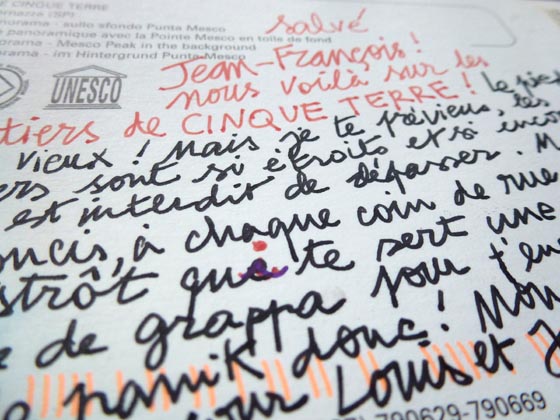 CINQUE TERRE
(SP)
sullo sfondo Punta Mesco
panoramique avec la Pointe Mesco en toile de fond
- Mesco Peak in the background
- im Hintergrund Punta Mesco
UNESCO
salvé
Jean-François!
nous voilà sur les
tiers de CINQUE TERRE! Le pie
vieux! Mais je te préviens, les
ers sont si étroits et si enco
est interdit de dépasser. M
oucis, à chaque coin de rue
strôt que te sert une
de grappa pour t'en
panik donc! Mon
our Louis et J
790629-790669